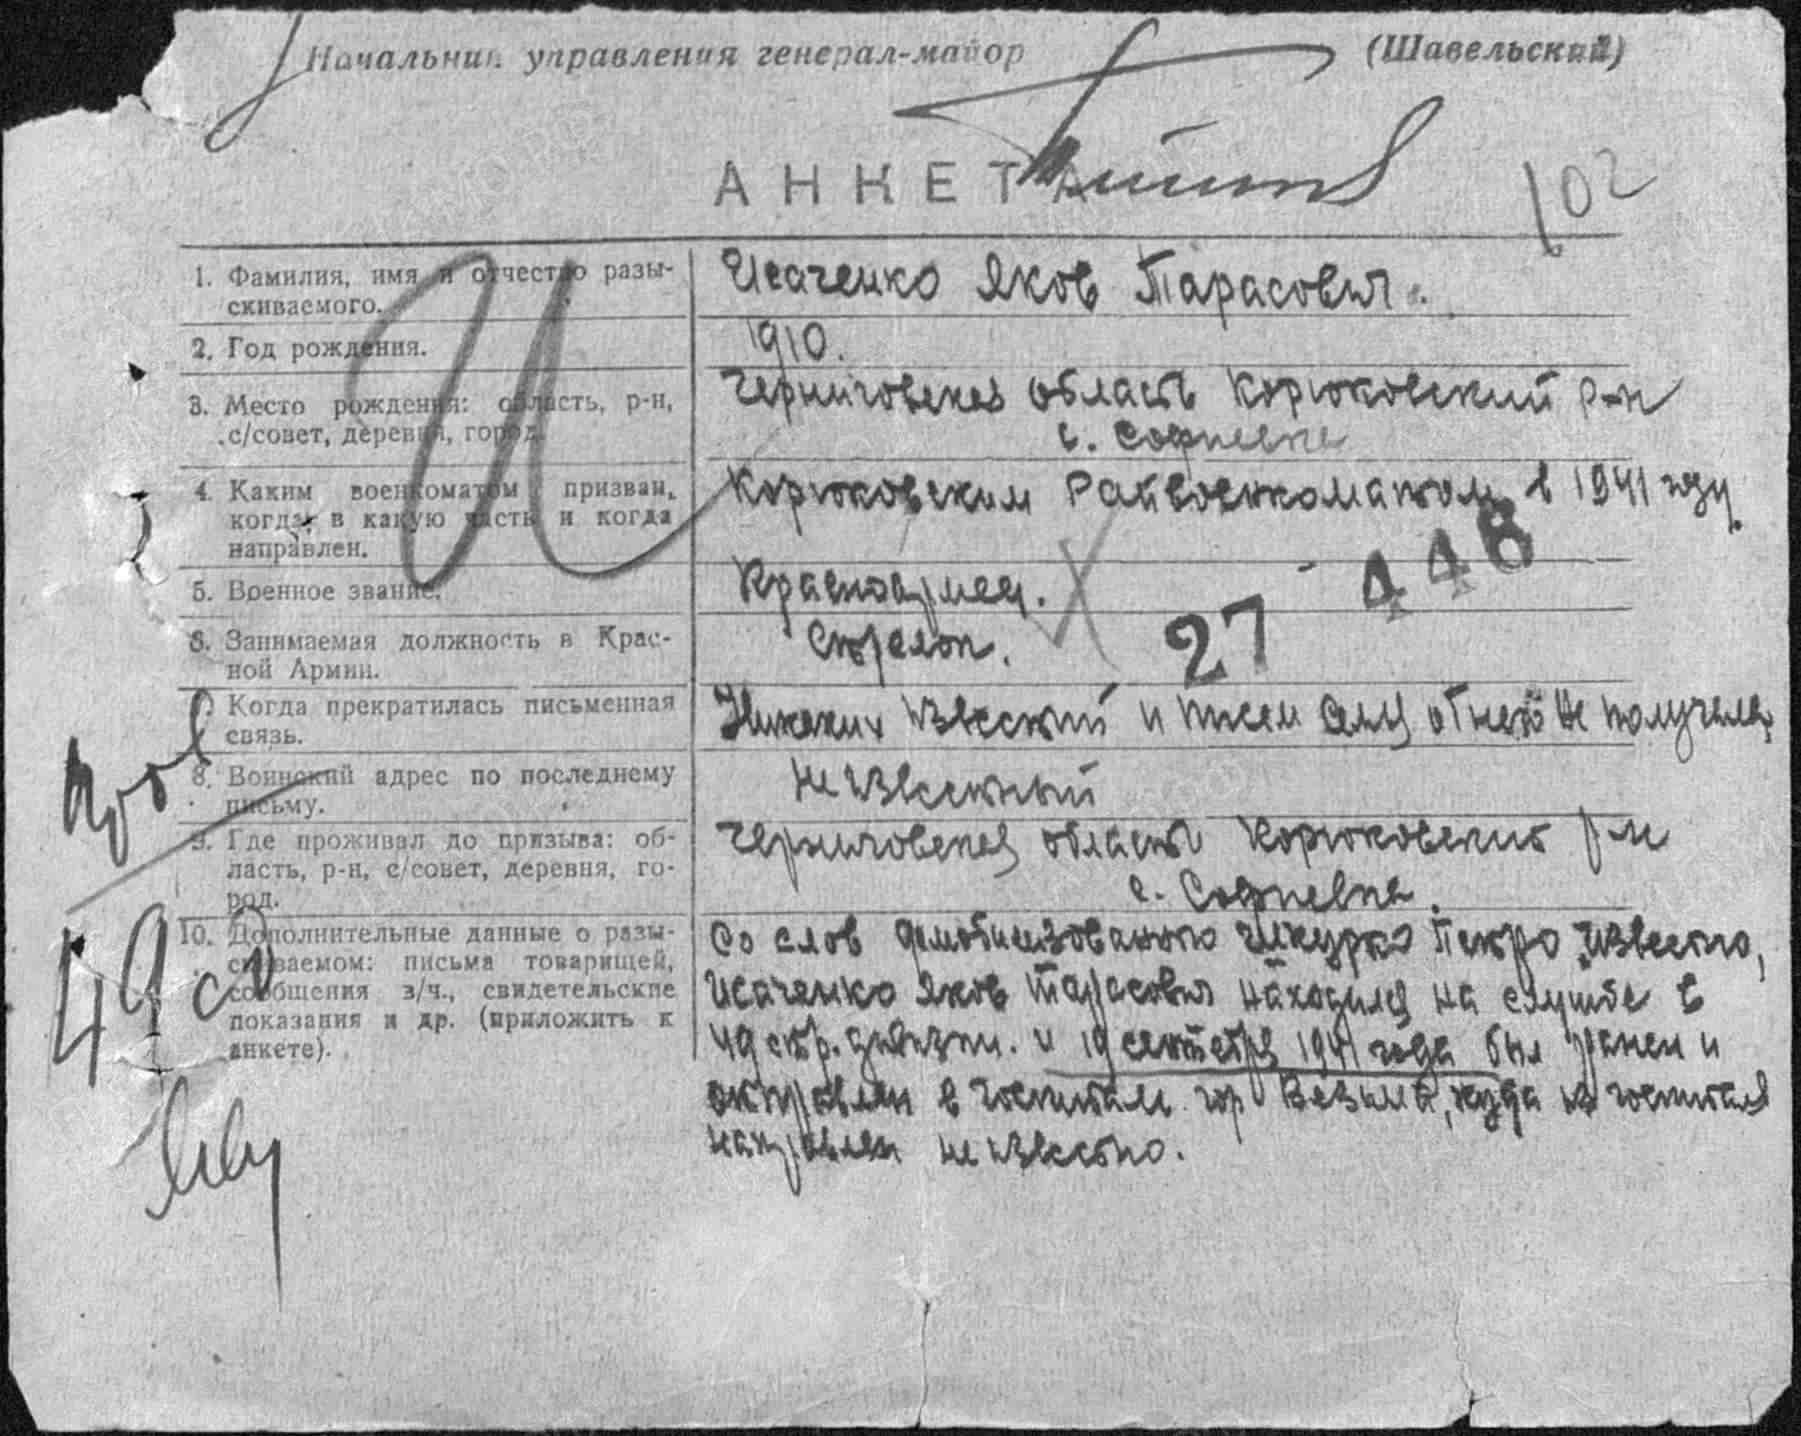 Начальник управления генерал-майор (Шавельский)
АНКЕТА
102
1. Фамилия, имя и отчество разы-
скиваемого.
Исаченко Яков Тарасович.
2. Год рождения.
1910.
3. Место рождения: область, р-н,
с/совет, деревня, город.
Черниговская область Корюковский р-н
с. Софиевка
4. Каким военкоматом призван,
когда, в какую часть и когда
направлен.
Корюковским Райвоенкоматом в 1941 году.
5. Военное звание.
Красноармеец.
27 448
6. Занимаемая должность в Крас-
ной Армии.
Стрелок.
7. Когда прекратилась письменная
связь.
Никаких известий и писем от него не получала
8. Воинский адрес по последнему
письму.
не известный
9. Где проживал до призыва: об-
ласть, р-н, с/совет, деревня, го-
род.
Черниговская область Корюковский р-н
с. Софиевка.
10. Дополнительные данные о разы-
скиваемом: письма товарищей,
сообщения в/ч., свидетельские
показания и др. (приложить к
анкете).
Со слов демобилизованого Петро известно,
Исаченко Яков Тарасович находился на службе в
49 стр. дивизии. и 19 сентября 1941 года был ранен и
отправлен в госпиталь гор Вязьма, куда из госпиталя
направлен не известно.
49 сд